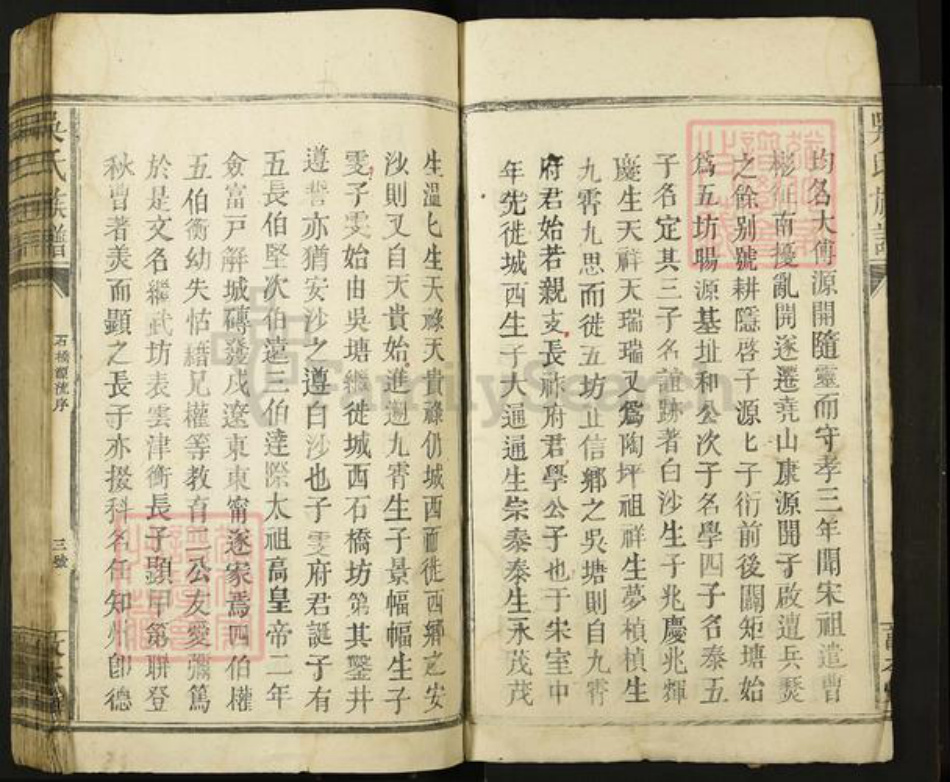 均名大傅源開隨靈而守孝三年聞宋祖遣曹
彬征南擾亂開遂遷堯山康源開子啟遭兵燹
之餘别號耕隱啓子源匕子衍前後闢矩塘始
爲五坊暘源基址和公次子名學四子名泰五
子名定其三子名誼跡著白沙生子兆慶兆輝
慶生天祥天瑞瑞又爲陶坪祖祥生夢楨楨生
九霄九思而徙五坊止信鄉之吳塘則自九霄
府君始若親支長祚府君學公子也于宋室中
年先徙城西生子大通通生崇泰泰生永茂茂
生溫匕生天祿天貴祿仍城西而徙西鄉之安
沙則又自天貴始進遡九霄生子景幅幅生子
雯子雯始由吳塘繼徙城西石橋坊第其鑿井
遵誓亦猶安沙之遵白沙也子雯府君誕子有
五長伯堅次伯遠三伯達際太祖高皇帝二年
僉富戸解城磚發戍遼東東甯遂家焉四伯權
五伯衡幼失怙縉兄權等教育二公友愛彌篤
於是文名繼武坊表雲津衡長子顯甲第聯登
秋曹著美而顯之長子亦掇科名任知州卽德
吳氏族譜
石橋源流序
三號
吳氏族譜